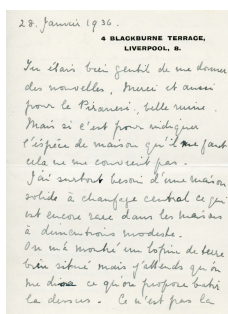 28. Janvier 1936.
4 BLACKBURNE TERRACE,
LIVERPOOL, 8.
Tu étais bien gentil de me donner
des nouvelles. Merci et aussi
pour le Piranesi, belle ruine.
Mais si c'est pour indiquer
l'espèce de maison qu'il me faut
cela ne me convient pas.
J'ai surtout besoin d'une maison
solide à chaufage central ce qui
est encore rare dans les maisons
à dimentions modeste.
On m'a montré un lopin de terre
bien situé mais j'attends qu'on
me dise ce qu'on propose batir
la dessus. Ce n'est pas la